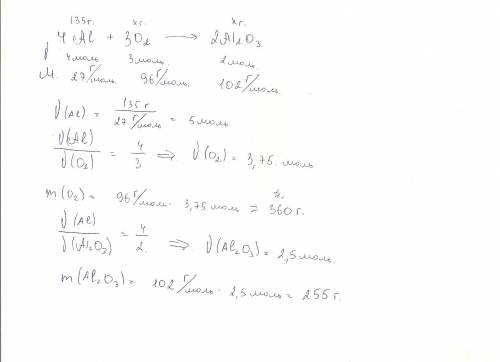 135г. xг. xг.
4Al + 3O2 → 2Al2O3.
ν 4моль 3моль. 2моль.
M. 27 г/моль 96 г/моль. 102 г/моль.
ν(Al) = 135 г / 27 г/моль = 5 моль.
ν(Al) / ν(O2) = 4 / 3 ⇒ ν(O2) = 3,75. моль
m(O2) = 96 г/моль · 3,75 моль = 360 г.
ν(Al) / ν(Al2O3) = 4 / 2. ⇒ ν(Al2O3) = 2,5 моль.
m(Al2O3) = 102 г/моль · 2,5 моль = 255 г.